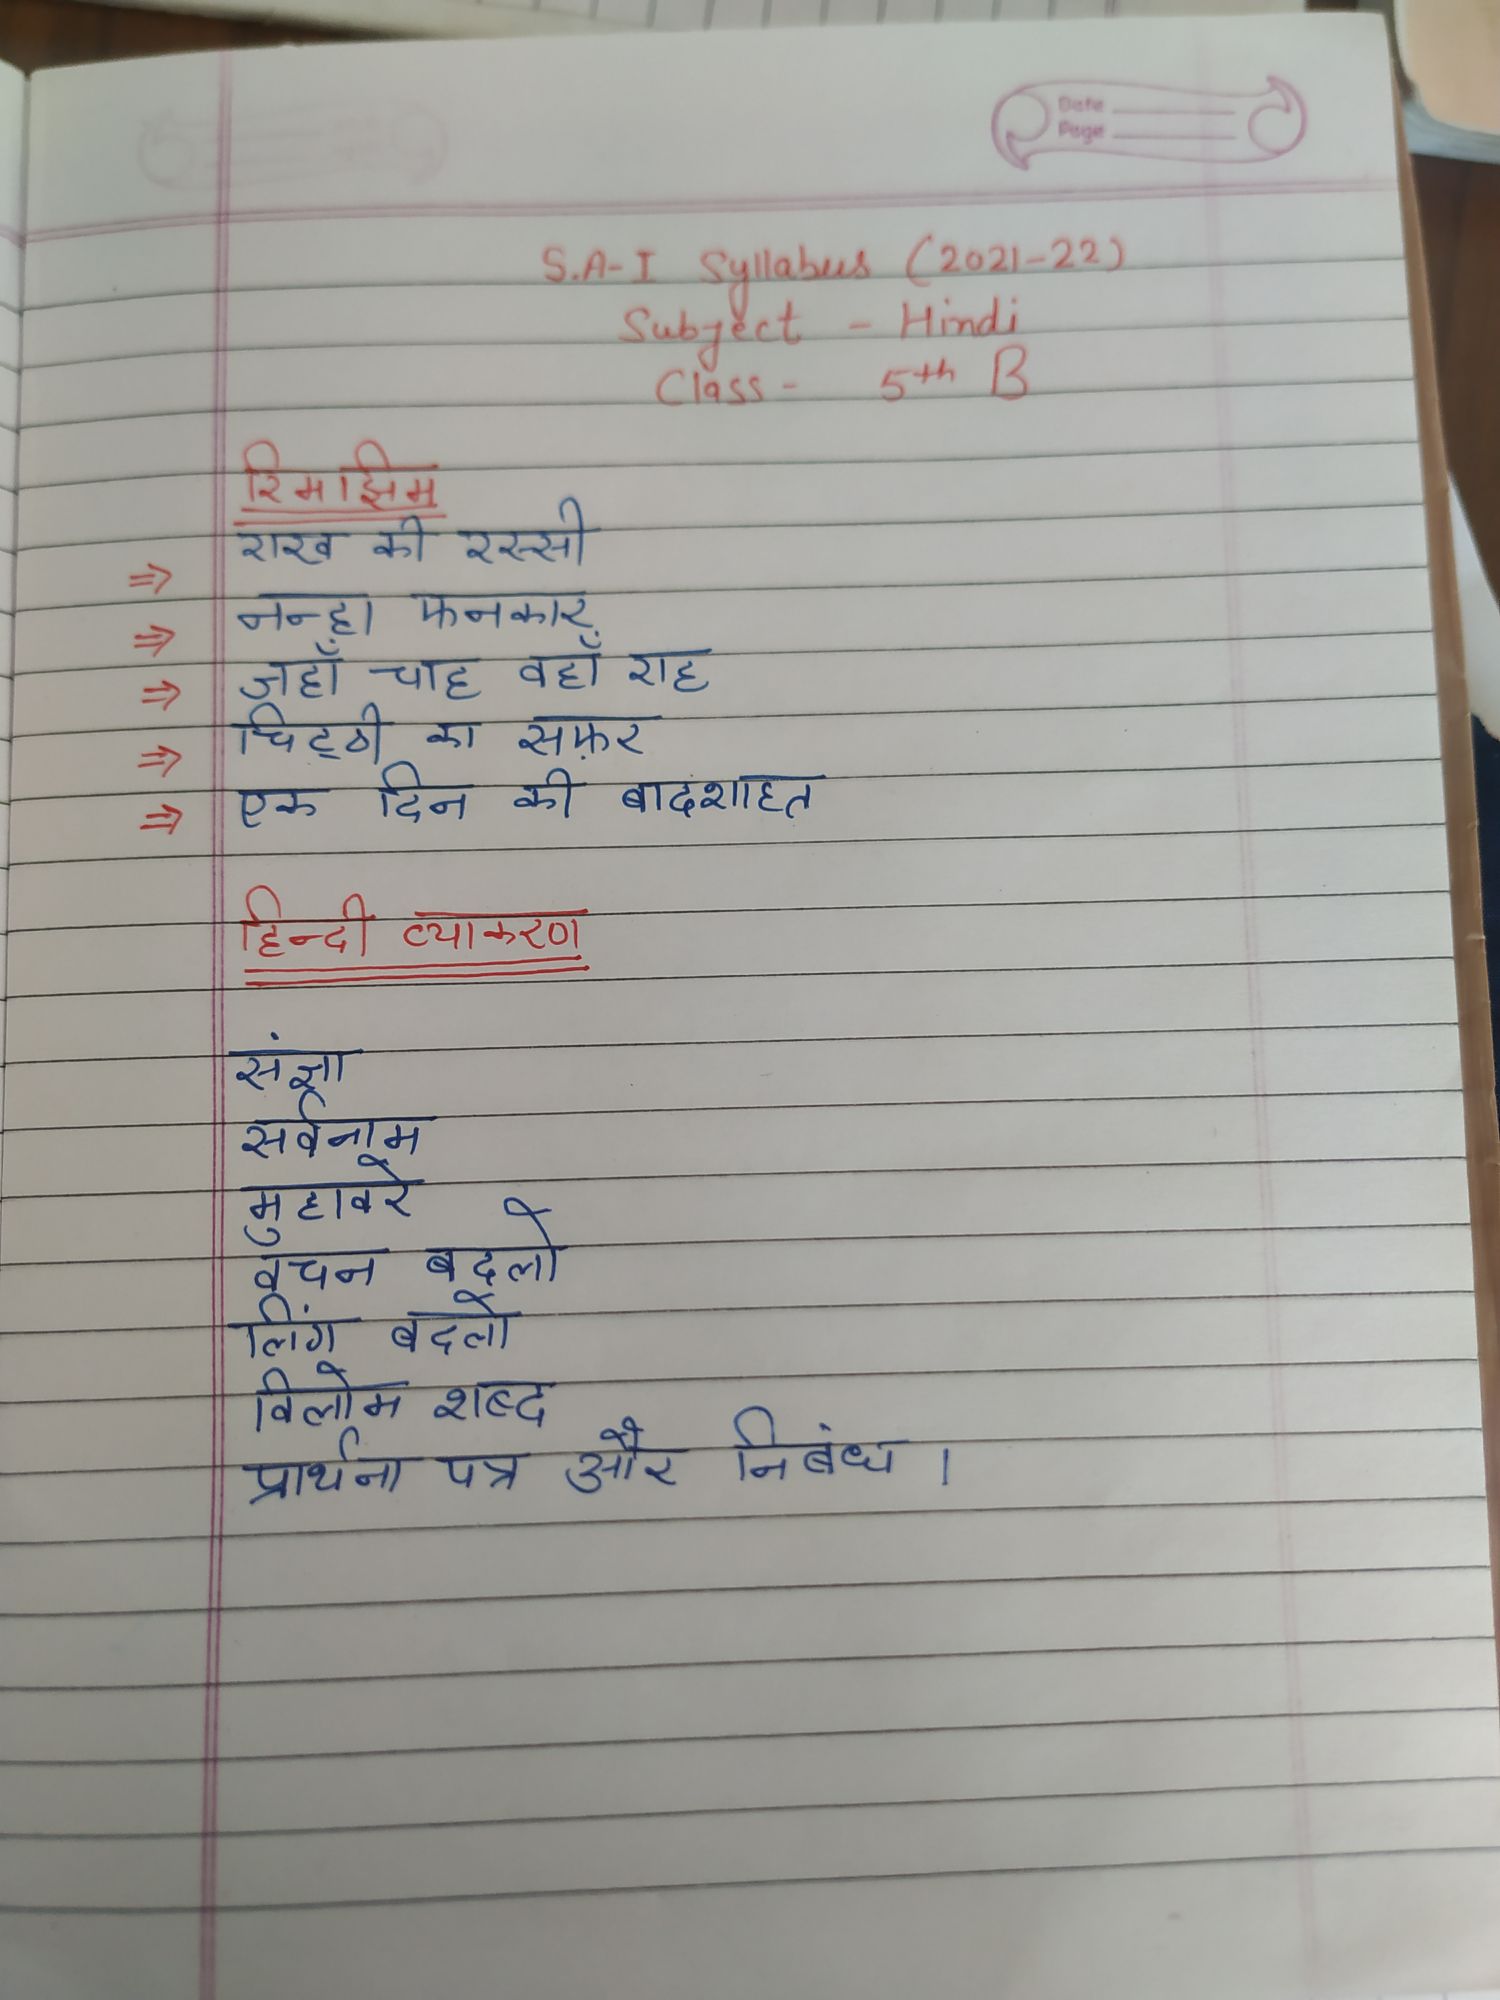 Date
Page
S.A-I Syllabus (2021-22)
Subject - Hindi
Class - 5th B
रिमझिम
⇒ राख की रस्सी
⇒ नन्हा फनकार
⇒ जहाँ चाह वहाँ राह
⇒ चिट्ठी का सफ़र
⇒ एक दिन की बादशाहत
हिन्दी व्याकरण
संज्ञा
सर्वनाम
मुहावरे
वचन बदलो
लिंग बदलो
विलोम शब्द
प्रार्थना पत्र और निबंध ।